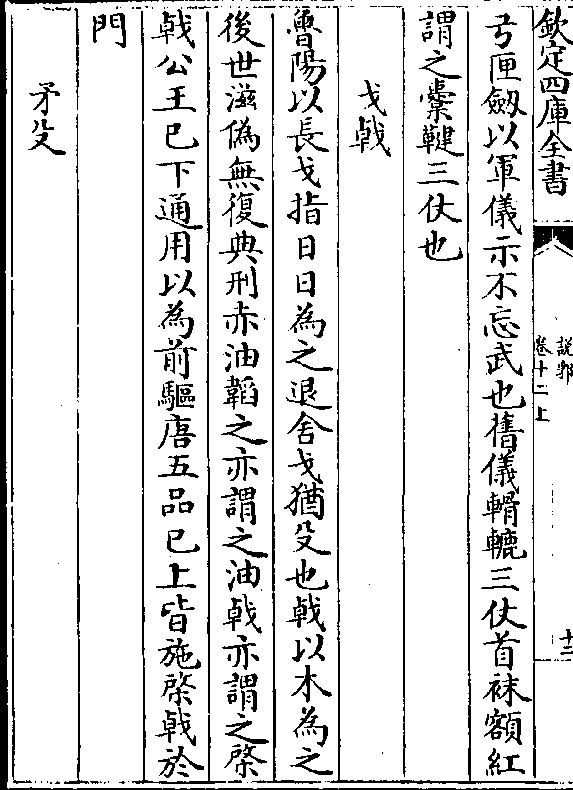 欽定四庫全書
説郛
卷十二上
十二
弓匣劔以軍儀示不忘武也舊儀韝轆三仗首袜額紅
謂之櫜鞬三仗也
戈戟
魯陽以長戈指日日為之退舍戈猶殳也戟以木為之
後世滋偽無復典刑赤油韜之亦謂之油戟亦謂之棨
戟公王已下通用以為前驅唐五品已上皆施棨戟於
門
矛殳